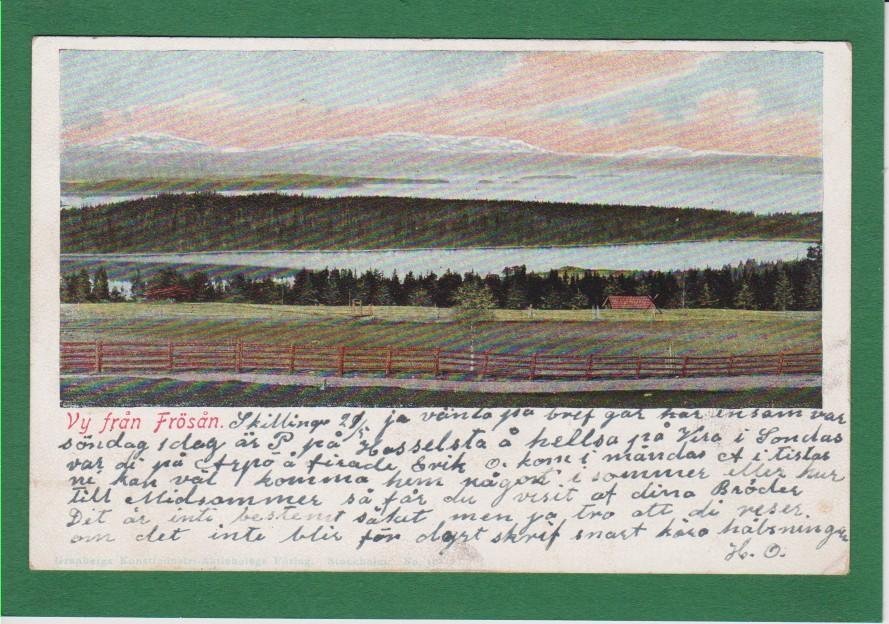 Vy från Frösån. Skillinge 29/5 ja vänta på bref går här ensam var
söndag i dag är P på Hasselsta å hellsa på Vira i Söndas
var di på Arpö å firade Erik O. kom i måndas A i tistas
ni kan väl komma hem något i sommer eller hur
till Midsommer så får du visit af dina Bröder
Det är inte bestemt säkat men ja tro att di reser.
om det inte blir för dyrt skrif snart kära hälsninger
H. O.
Granbergs Konstindustri-Aktiebolags Förlag. Stockholm. No.